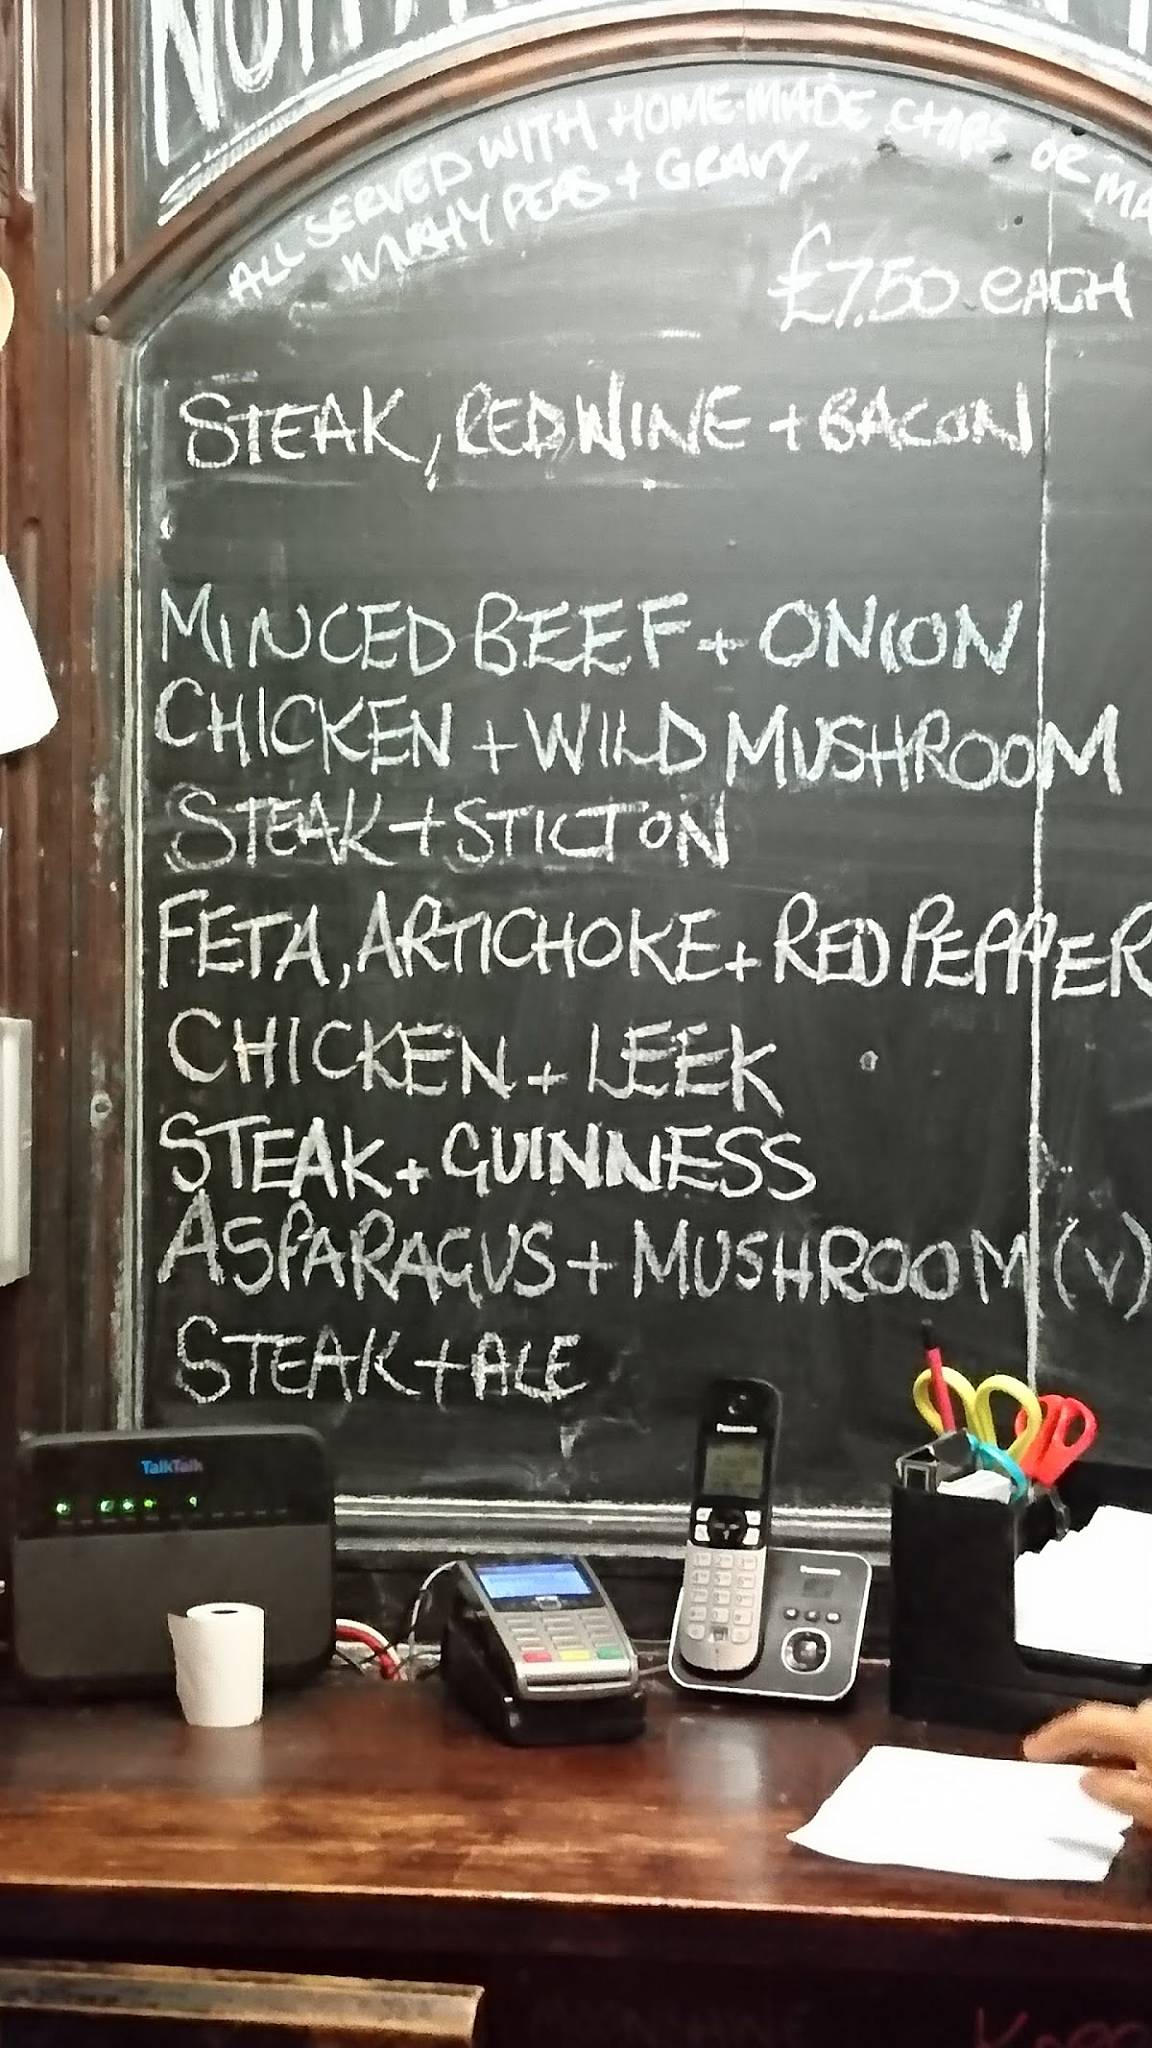 ALL SERVED WITH HOME-MADE CHIPS OR MA
MUSHY PEAS + GRAVY.
£7.50 EACH
STEAK, RED WINE + BACON
MINCED BEEF + ONION
CHICKEN + WILD MUSHROOM
STEAK + STILTON
FETA, ARTICHOKE + RED PEPPER
CHICKEN + LEEK
STEAK + GUINNESS
ASPARAGUS + MUSHROOM (V)
STEAK + ALE
TalkTalk
Panasonic
Panasonic